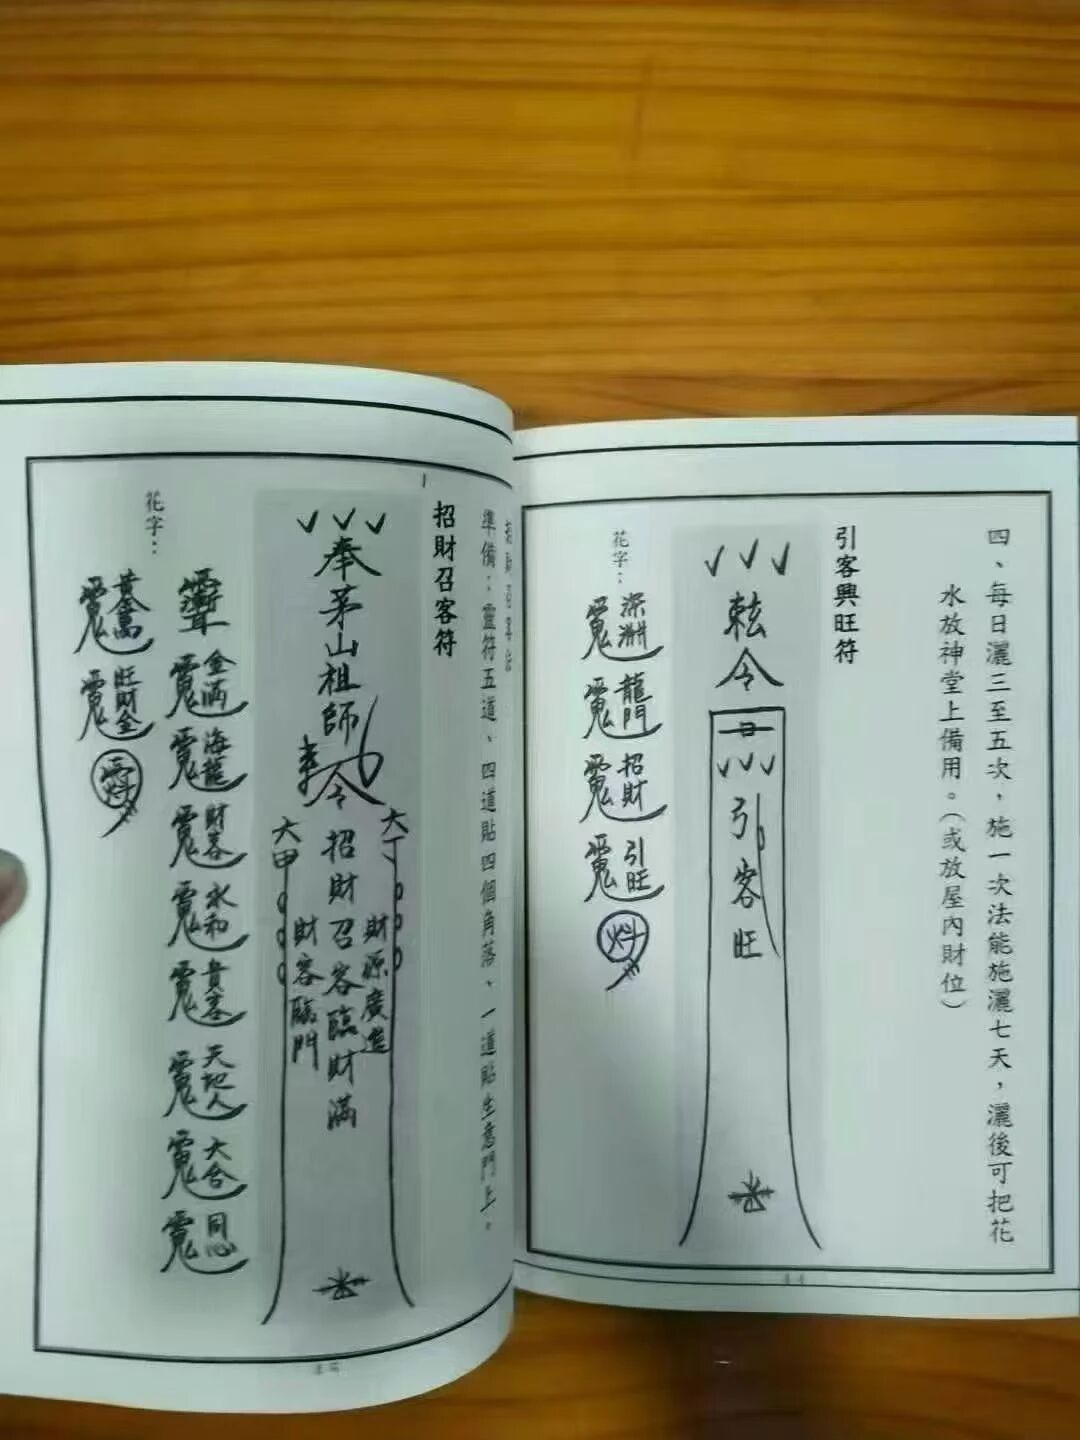 四、每日灑三至五次，施一次法能施灑七天，灑後可把花
水放神堂上備用。（或放屋內財位）
引客興旺符
敕令
引客旺
花字：
深淵
龍門
招財
引旺
準備：靈符五道、四道貼四個角落、一道貼生意門上。
招財召客符
奉茅山祖師
令
招財召客臨財滿
六丁
財源廣進
六甲
財客臨門
花字：
金滿
海龍
財客
水和
貴客
天地人
六合
同心
旺財金